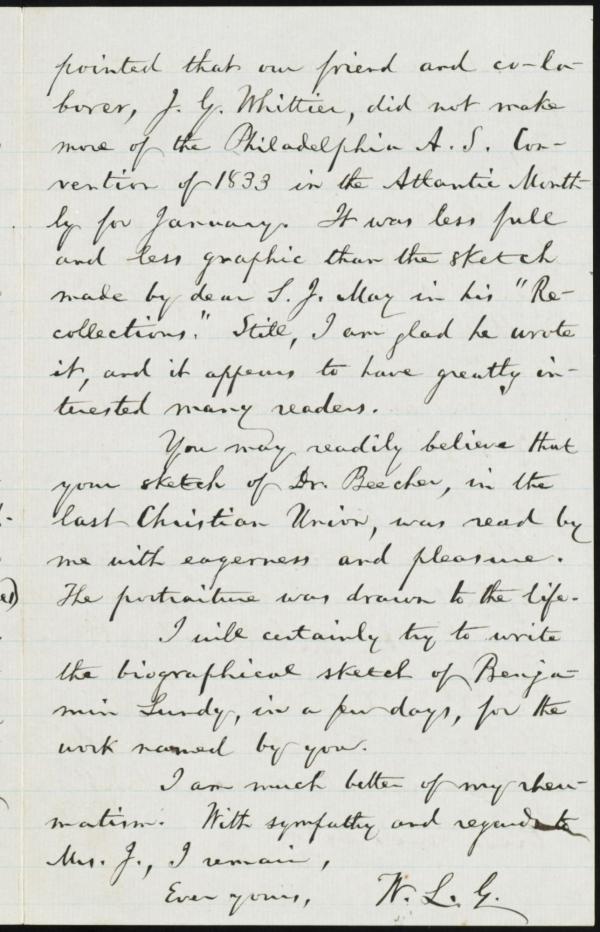 pointed that our friend and co-la-
borer, J. G. Whittier, did not make
more of the Philadelphia A. S. Con-
vention of 1833 in the Atlantic Month-
ly for January. It was less full
and less graphic than the sketch
made by dear S. J. May in his "Re-
collections." Still, I am glad he wrote
it, and it appears to have greatly in-
terested many readers.
You may readily believe that
your sketch of Dr. Beecher, in the
last Christian Union, was read by
me with eagerness and pleasure.
The portraiture was drawn to the life.
I will certainly try to write
the biographical sketch of Benja-
min Lundy, in a few days, for the
work named by you.
I am much better of my rheu-
matism. With sympathy and regards to
Mrs. J., I remain,
Ever yours, W. L. G.